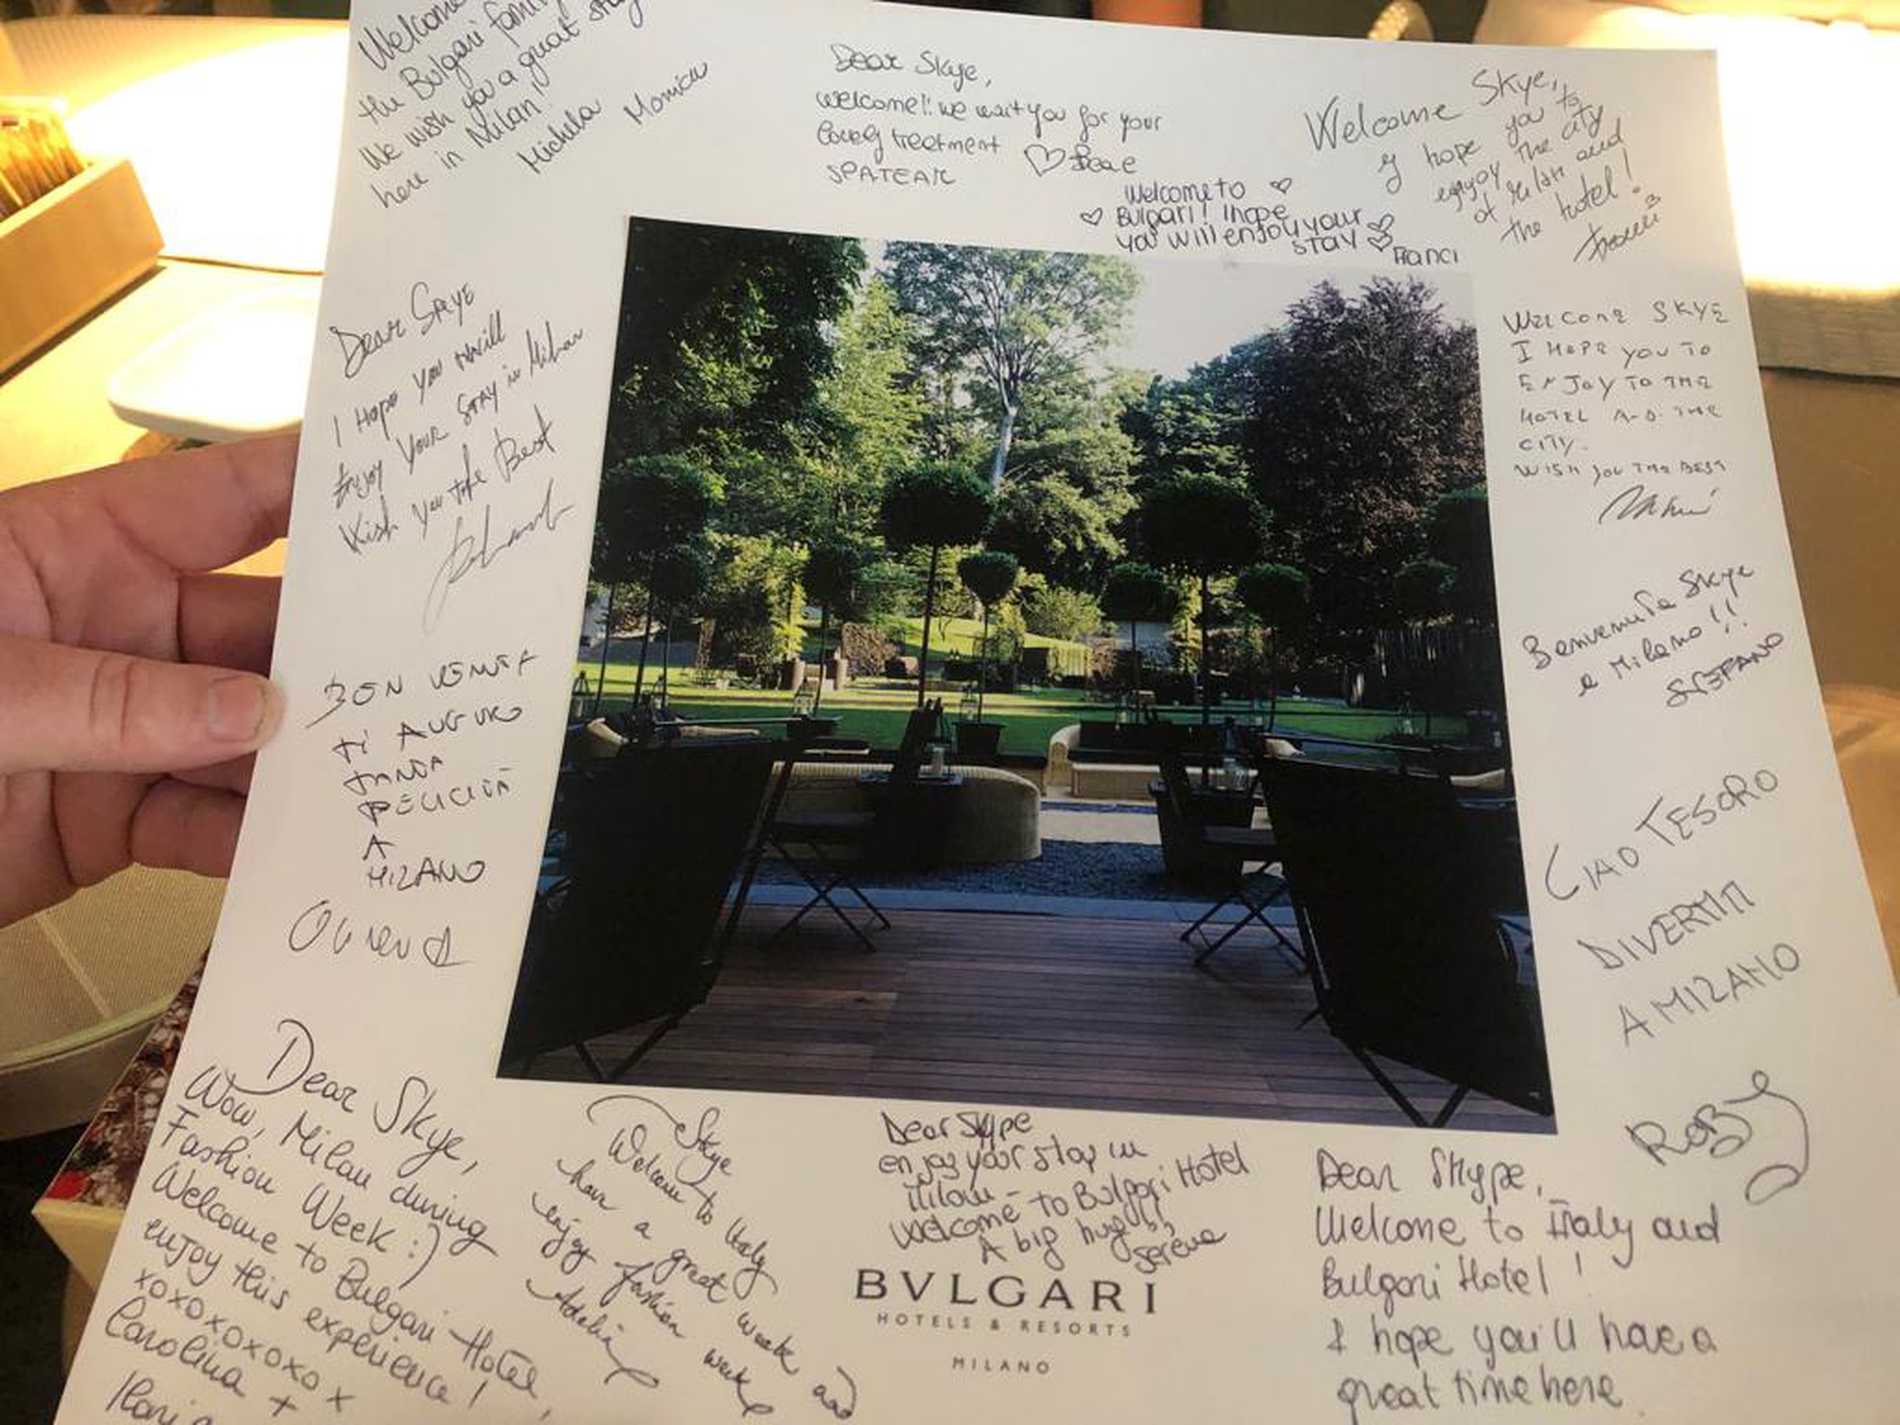 Welcome
the Bulgari family
We wish you a great stay
here in Milan!
Michela Monica
Dear Skye,
welcome!! we wait you for your
lovely treetment
SPATEAM
Welcome to
Bulgari! I hope
you will enjoy your
stay
Franci
Welcome Skye,
I hope you to
enjoy the city
of Milan and
the hotel!
Dear Skye
I Hope you will
Enjoy Your Stay in Milan
Wish You the Best
WELCOME SKYE
I HOPE YOU TO
ENJOY TO THE
HOTEL AND THE
CITY.
WISH YOU THE BEST
Benvenuta Skye
a Milano!!!
STEFANO
BENVENUTA
TI AUGURO
TANTA
FELICITÀ
A
MILANO
CIAO TESORO
DIVERTITI
A MILANO
ROBY
Dear Skye,
Wow, Milan during
Fashion Week :)
Welcome to Bulgari Hotel,
enjoy this experience!
xoxoxoxoxox
Carolina +
Skye
Welcome to Italy
have a great week and
enjoy fashion week
Dear Skype
enjoy your stay in
Milan - to Bulgari Hotel
welcome
A big hug!!
Serena
Dear Skype,
Welcome to Italy and
Bulgari Hotel!
I hope you'll have a
great time here
BVLGARI
HOTELS & RESORTS
MILANO